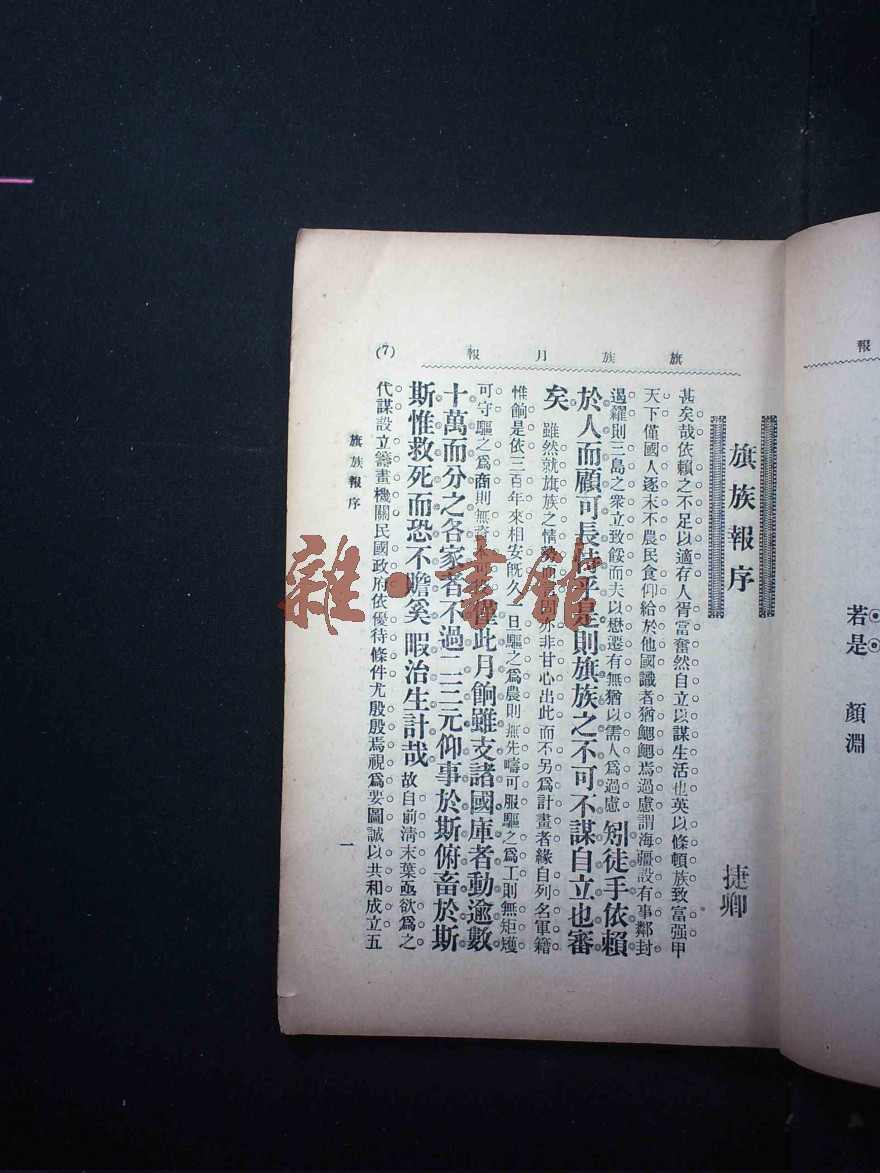 報
若是　顏淵
旗族月報
旗族報序
捷卿
甚矣哉依賴之不足以適存人胥當奮然自立以謀生活也英以條頓族致富强甲
天下僅國人逐末不農民食仰給於他國識者猶鰓鰓焉過慮謂海疆設有事鄰封
遏糴則三島之衆立致餒而夫以懋遷有無猶以需人爲過慮矧徒手依賴
於人而顧可長恃乎是則旗族之不可不謀自立也審
矣雖然就旗族之情亦非甘心出此而不另爲計畫者緣自列名軍籍
惟餉是依三百年來相安旣久一日驅之爲農則無先疇可服驅之爲工則無矩矱
可守驅之爲商則無此月餉雖支諸國庫者動逾數
十萬而分之各家者不過二三元仰事於斯俯畜於斯
斯惟救死而恐不贍奚暇治生計哉故自前淸末葉亟欲爲之
代謀設立籌畫機關民國政府依優待條件尤殷殷焉視爲要圖誠以共和成立五
旗族報序
一
(7)
雜·書館